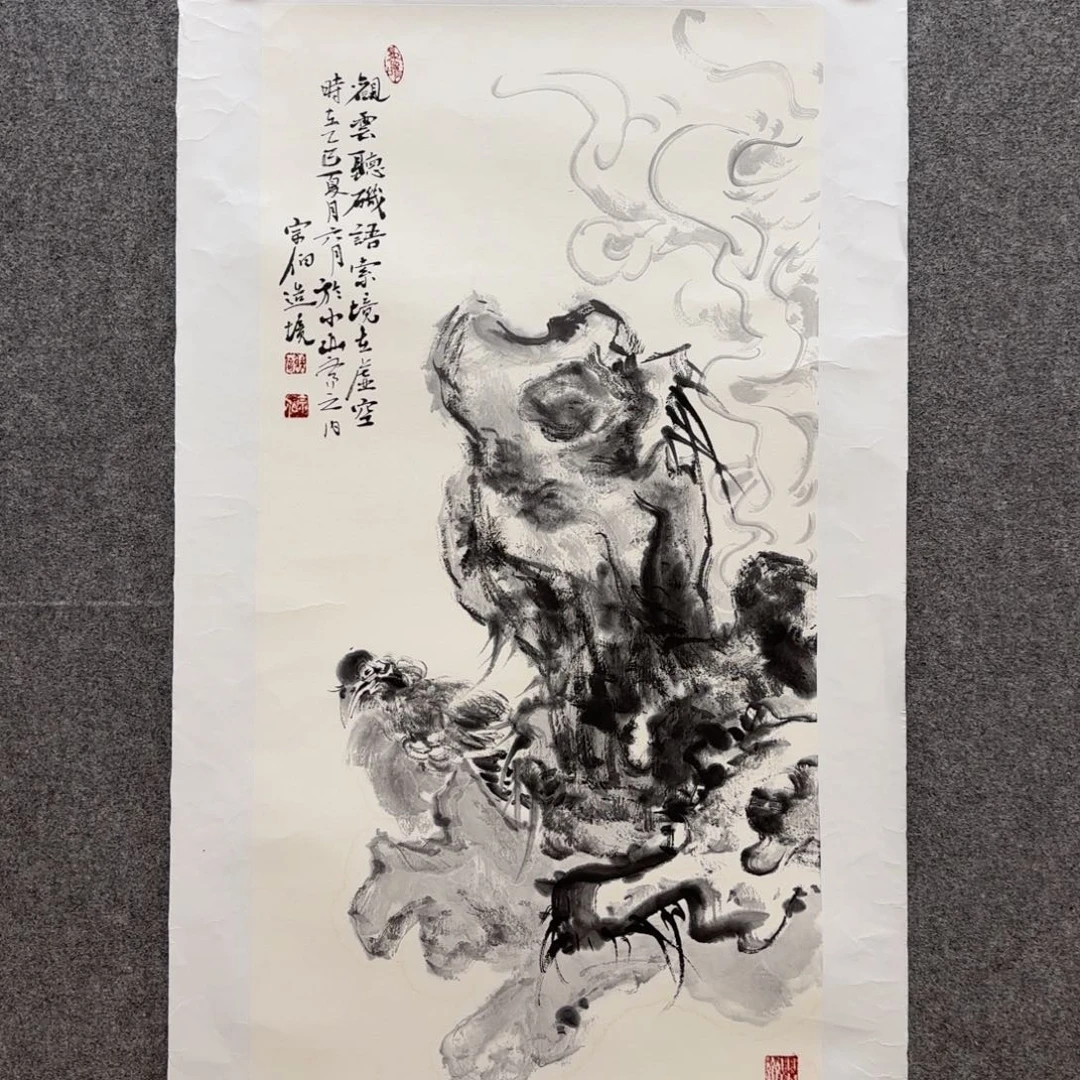 觀雲聽磯語索境在虛空
時在乙巳夏月六月於小山齋之內
宗伯造境